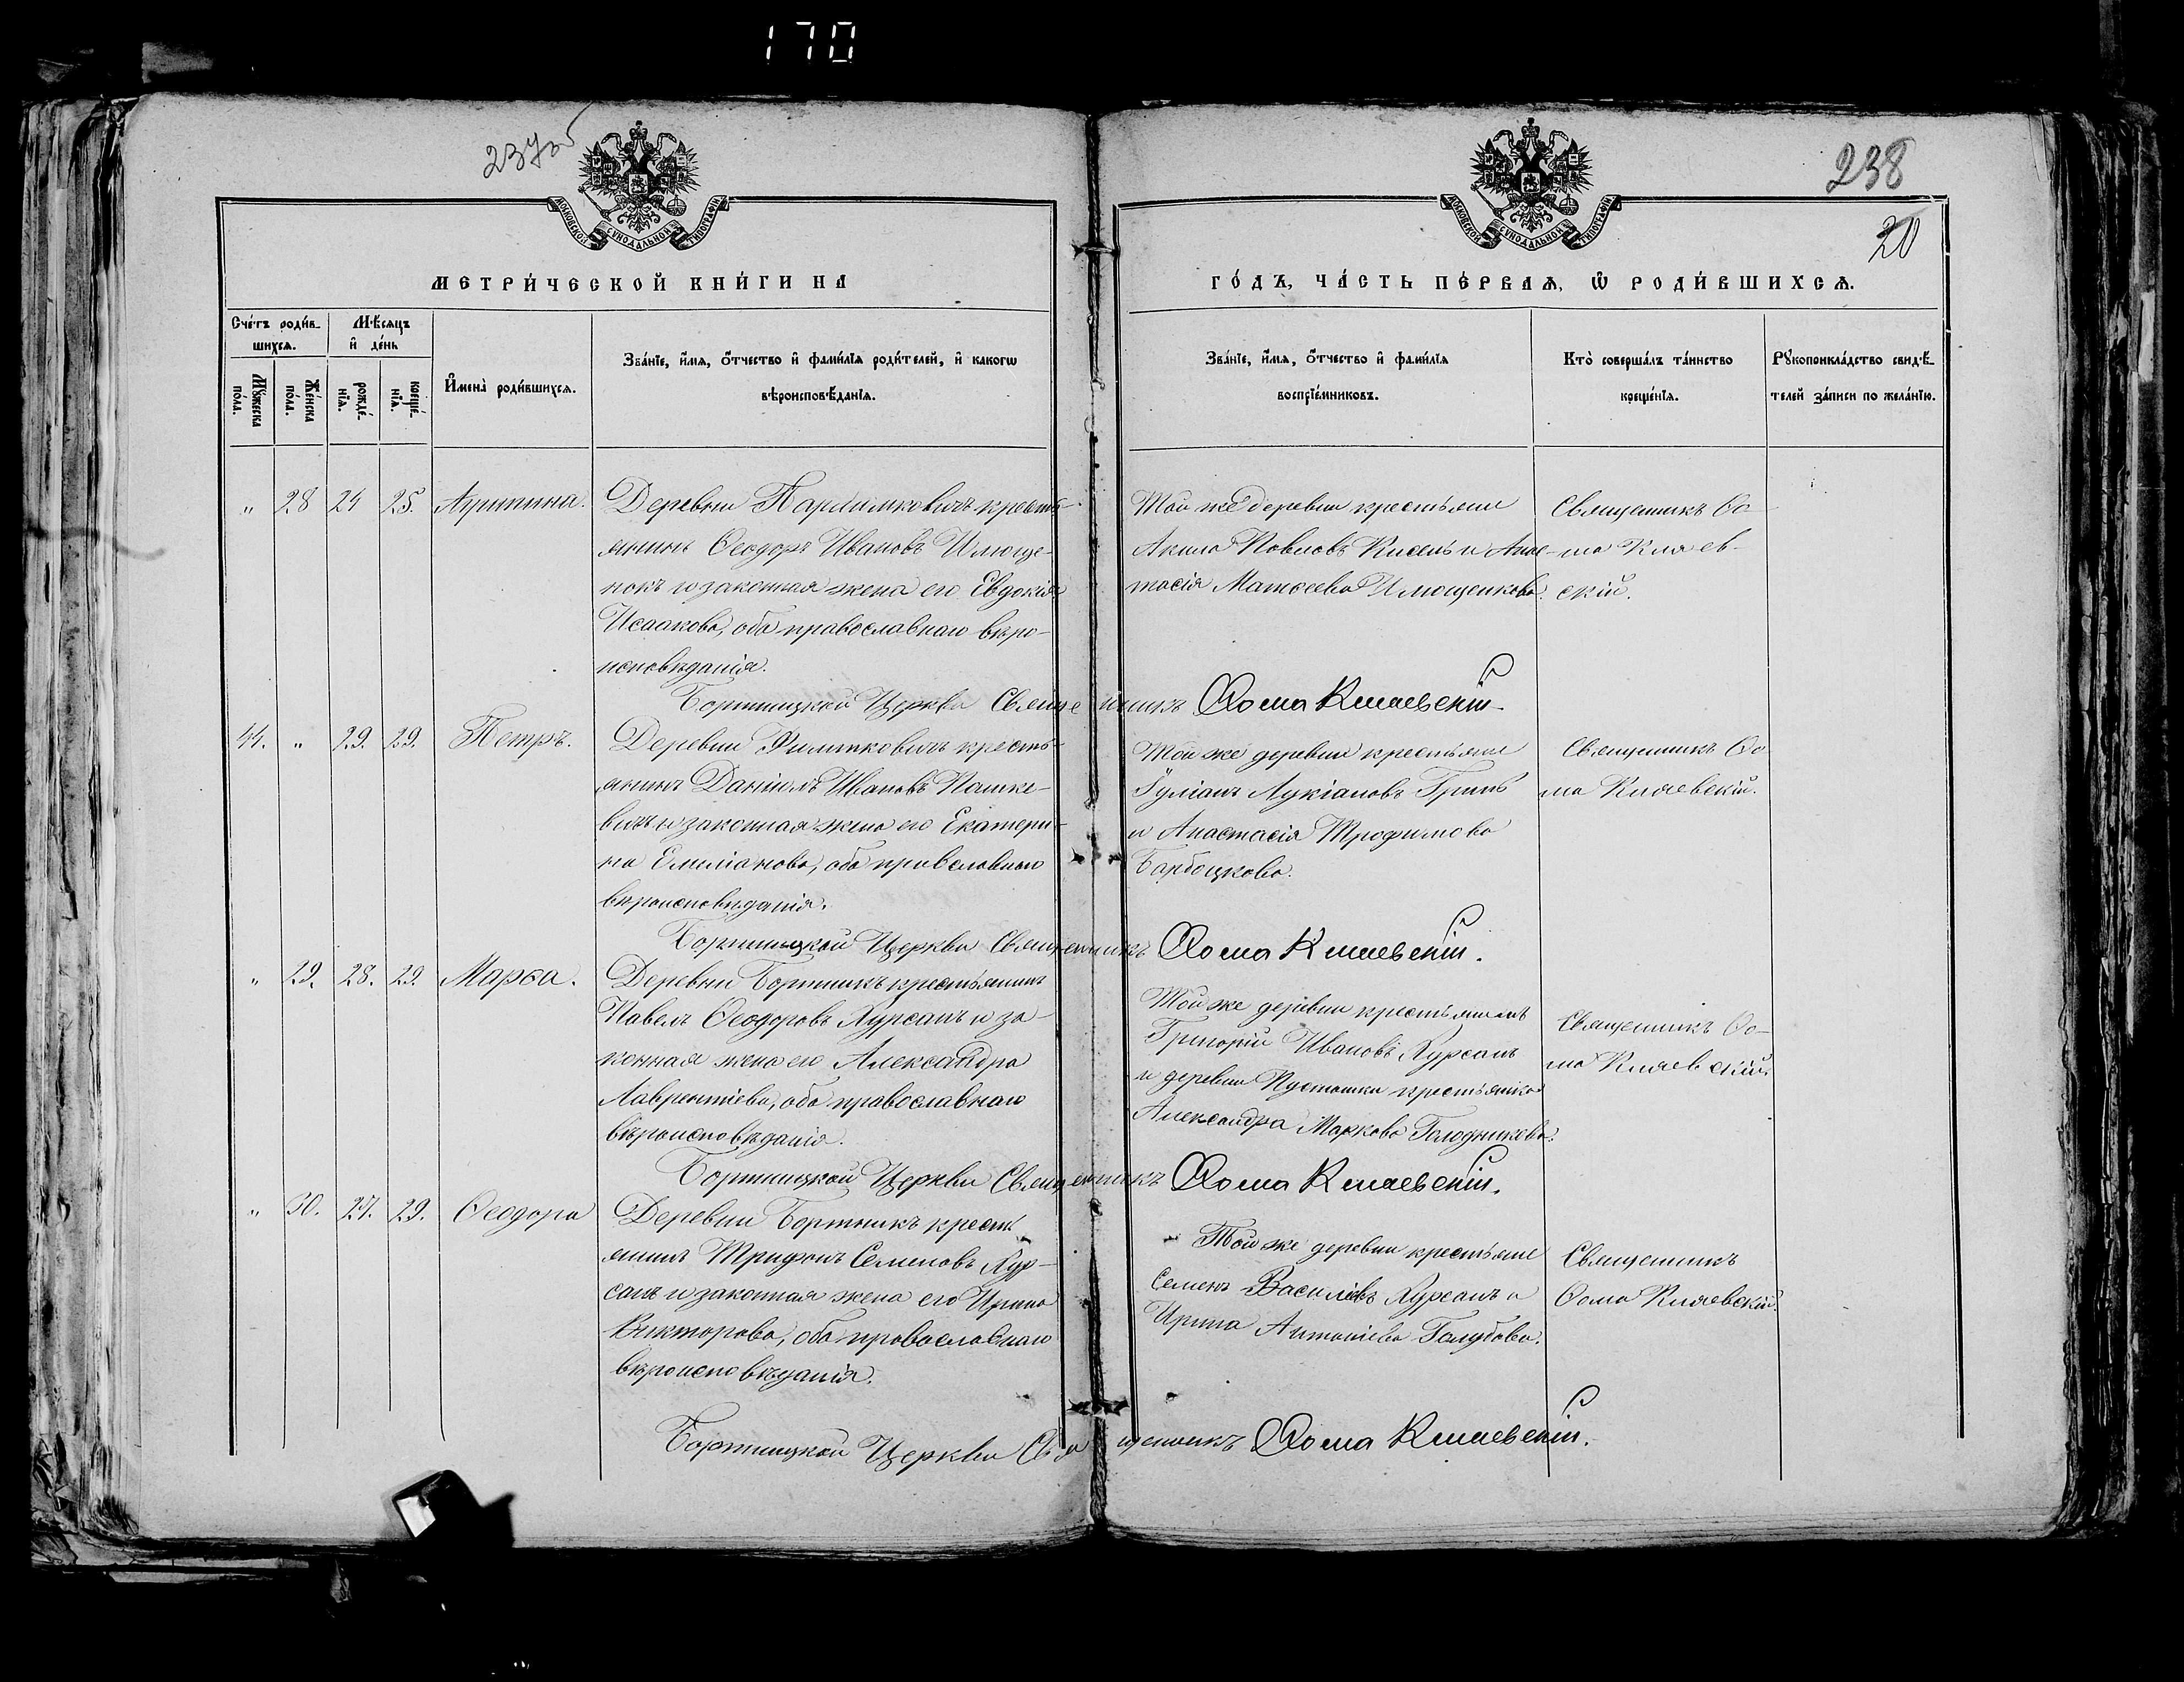 170
237об
238
20
МОСКОВСКОЙ СѴНОДАЛЬНОЙ ТИПОГРАФІИ
МОСКОВСКОЙ СѴНОДАЛЬНОЙ ТИПОГРАФІИ
МЕТРИ́ЧЕСКОЙ КНИ́ГИ НА
ГО́ДЪ, ЧА́СТЬ ПЕ́РВАѦ, Ѡ҆ РОДИ́ВШИХСѦ.
Сче́тъ роди́в-
шихсѧ.
Мѣ́сѧцъ
и҆ де́нь
Мꙋ́жеска
по́ла.
Же́нска
по́ла.
рожде́-
нїѧ.
креще́-
нїѧ.
И҆мена̀ роди́вшихсѧ.
Зва́нїе, и҆́мѧ, ѻ҆́тчество и҆ фами́лїѧ роди́телей, и҆ какогѡ
вѣроисповѣ́данїѧ.
Зва́нїе, и҆́мѧ, ѻ҆́тчество и҆ фами́лїѧ
воспрїе́мниковъ.
Кто̀ соверша́лъ та́инство
креще́нїѧ.
Рꙋкоприкла́дство свидѣ́-
телей за́писи по жела́нїю.
„ 28 24 25. Агрипина.
Деревни крестья-
нинъ Ѳеодоръ Ивановъ Илюще-
нокъ и законная жена его Евдокія
Исаакова, оба православнаго вѣро-
исповѣданія.
Той же деревни крестьяне
Акила Павловъ Кисель и Анас-
тасія Матѳеева Илющенкова.
Священникъ Ѳо-
ма Кляев-
скій.
Бортницкой Церкви Священникъ Ѳома Кляевскій.
44. „ 29. 29. Петръ.
Деревни Филипковичъ кресть-
янинъ Даніилъ Ивановъ Пашке-
вичъ и законная жена его Екатери-
на Емиліанова, оба православнаго
вѣроисповѣданія.
Той же деревни крестьяне
Іуліанъ Лукіановъ Гринь
и Анастасія Трофимова
Барбоцкова.
Священникъ Ѳо-
ма Кляевскій.
Бортницкой Церкви Священникъ Ѳома Кляевскій.
„ 29. 28. 29. Марѳа.
Деревни Бортникъ крестьянинъ
Павелъ Ѳеодоровъ Хурсанъ и за-
конная жена его Александра
Лаврентіева, оба православнаго
вѣроисповѣданія.
Той же деревни крестьянинъ
Григорій Ивановъ Хурсанъ
и деревни Пустошки крестьянка
Александра Маркова Голодникова.
Священникъ Ѳо-
ма Кляевскій.
Бортницкой Церкви Священникъ Ѳома Кляевскій.
„ 30. 27. 29. Ѳеодора
Деревни Бортникъ кресть-
янинъ Трифонъ Семеновъ Хур-
санъ и законная жена его Ирина
Викторова, оба православнаго
вѣроисповѣданія.
Той же деревни крестьяне
Семенъ Васильевъ Хурсанъ и
Ирина Антоніева Голубова.
Священникъ
Ѳома Кляевскій.
Бортницкой Церкви Священникъ Ѳома Кляевскій.